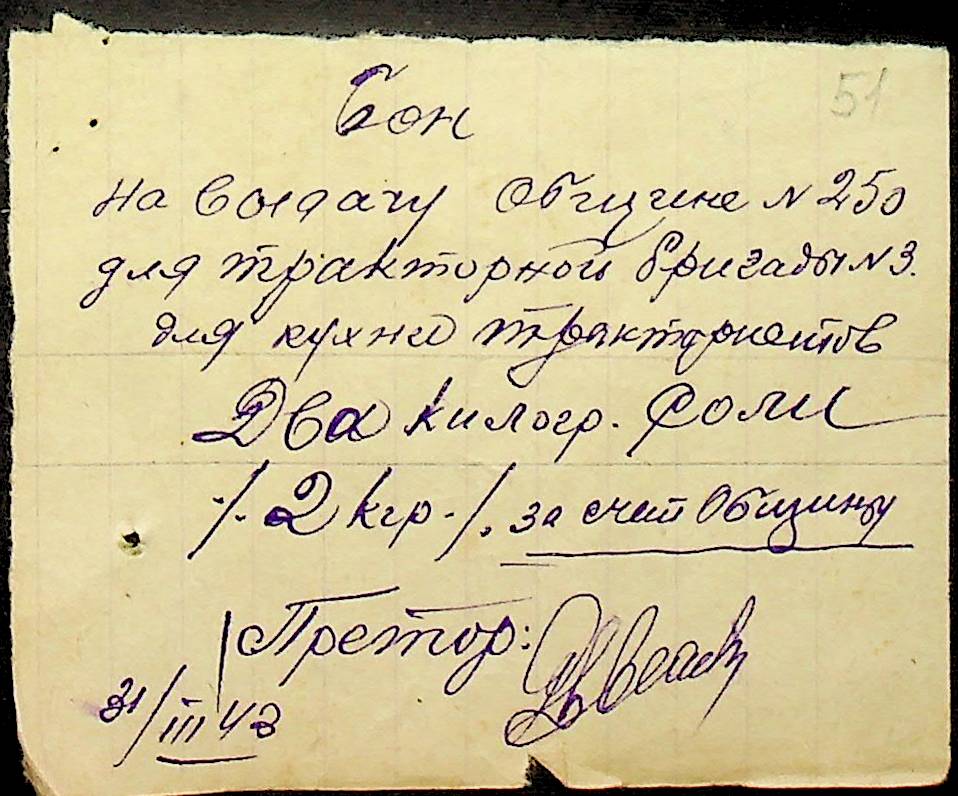 51
Бон
на выдачу Общине N 250
для тракторной бригады N 3.
для кухни трактористов
Два килогр. соли
·/. 2 кгр ·/. за счет Общины
Претор:
31/III 43